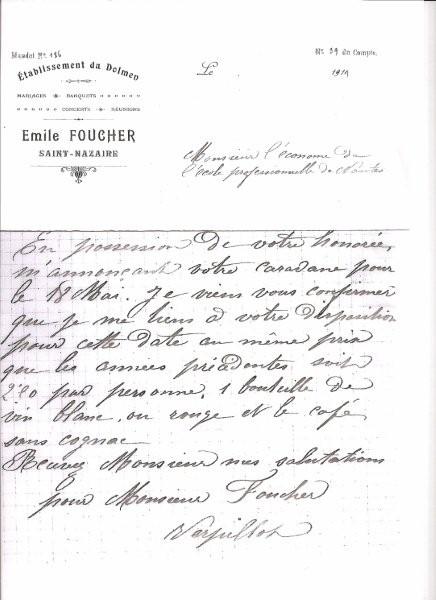 Mandat No. 186
No. 39 du Compte.
Établissement du Dolmen
MARIAGES BANQUETS
CONCERTS RÉUNIONS
Emile FOUCHER
SAINT-NAZAIRE
Le 191
Monsieur l'économe de
l'école professionnelle de Nantes
En possession de votre honorée,
m'annonçant votre caravane pour
le 18 Mai. Je viens vous confirmer
que je me tiens à votre disposition
pour cette date au même prix
que les annees précédentes soit
par personne, 1 bouteille de
vin blanc, ou rouge et le café
sans cognac
Recevez Monsieur mes salutations
pour Monsieur Foucher